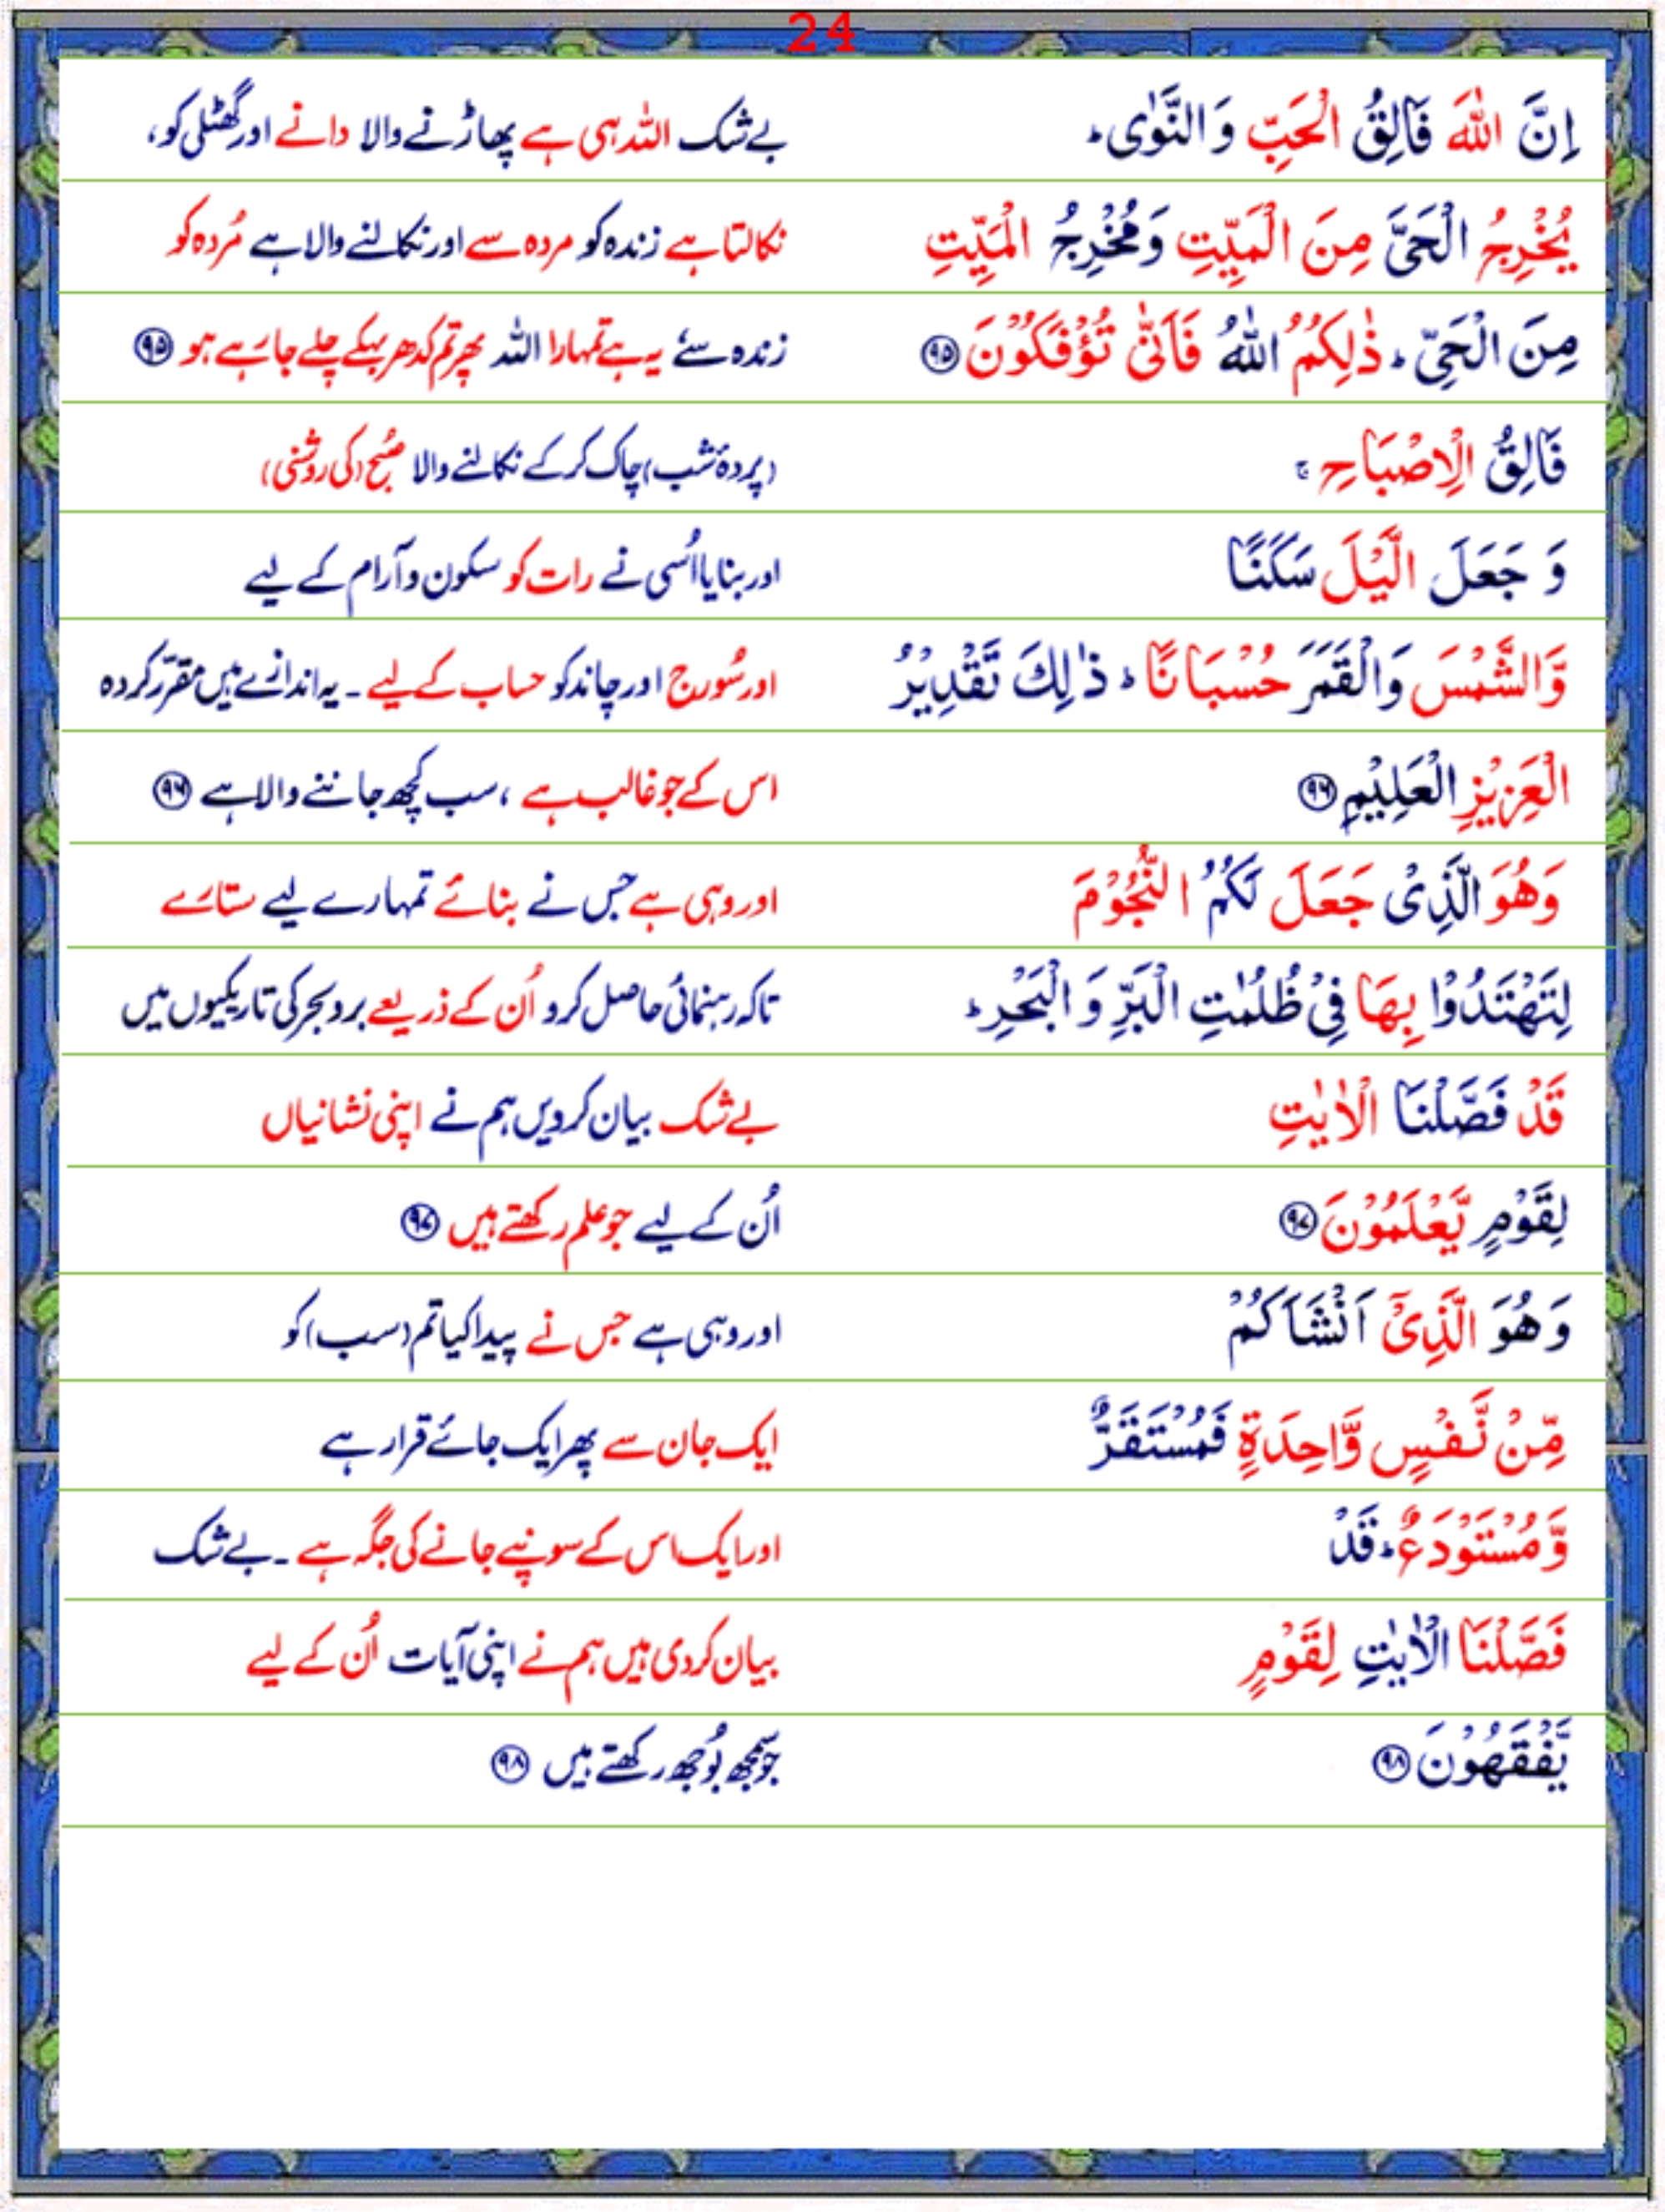 24
اِنَّ اللّٰهَ فَالِقُ الْحَبِّ وَ النَّوٰى ؕ
بےشک اللہ ہی ہے پھاڑنے والا دانے اور گٹھلی کو،
يُخْرِجُ الْحَىَّ مِنَ الْمَيِّتِ وَمُخْرِجُ الْمَيِّتِ
نکالتا ہے زندہ کو مردہ سے اور نکالنے والا ہے مُردہ کو
مِنَ الْحَىِّ ؕ ذٰلِكُمُ اللّٰهُ فَاَنّٰى تُؤْفَكُوْنَ ﴿۹۵﴾
زندہ سے یہ ہے تمہارا اللہ پھر تم کدھر بہکے چلے جا رہے ہو ﴿۹۵﴾
فَالِقُ الْاِصْبَاحِ ۚ
(پردۂ شب) چاک کر کے نکالنے والا صُبح (کی روشنی)
وَ جَعَلَ الَّيْلَ سَكَنًا
اور بنایا اُسی نے رات کو سکون و آرام کے لیے
وَّالشَّمْسَ وَالْقَمَرَ حُسْبَانًا ؕ ذٰلِكَ تَقْدِيْرُ
اور سُورج اور چاند کو حساب کے لیے ۔ یہ اندازے ہیں مقرّر کردہ
الْعَزِيْزِ الْعَلِيْمِ ﴿۹۶﴾
اس کے جو غالب ہے ، سب کچھ جاننے والا ہے ﴿۹۶﴾
وَهُوَ الَّذِىْ جَعَلَ لَكُمُ النُّجُوْمَ
اور وہی ہے جس نے بنائے تمہارے لیے ستارے
لِتَهْتَدُوْا بِهَا فِىْ ظُلُمٰتِ الْبَرِّ وَ الْبَحْرِ ؕ
تاکہ رہنمائی حاصل کرو اُن کے ذریعے بر و بحر کی تاریکیوں میں
قَدْ فَصَّلْنَا الْاٰيٰتِ
بےشک بیان کردیں ہم نے اپنی نشانیاں
لِقَوْمٍ يَّعْلَمُوْنَ ﴿۹۷﴾
اُن کے لیے جو علم رکھتے ہیں ﴿۹۷﴾
وَ هُوَ الَّذِىْۤ اَنْشَاَكُمْ
اور وہی ہے جس نے پیدا کیا تم (سب) کو
مِّنْ نَّفْسٍ وَّاحِدَةٍ فَمُسْتَقَرٌّ
ایک جان سے پھر ایک جائے قرار ہے
وَّمُسْتَوْدَعٌ ؕ قَدْ
اور ایک اس کے سونپے جانے کی جگہ ہے ۔ بےشک
فَصَّلْنَا الْاٰيٰتِ لِقَوْمٍ
بیان کردی ہیں ہم نے اپنی آیات اُن کے لیے
يَّفْقَهُوْنَ ﴿۹۸﴾
جو سمجھ بُوجھ رکھتے ہیں ﴿۹۸﴾